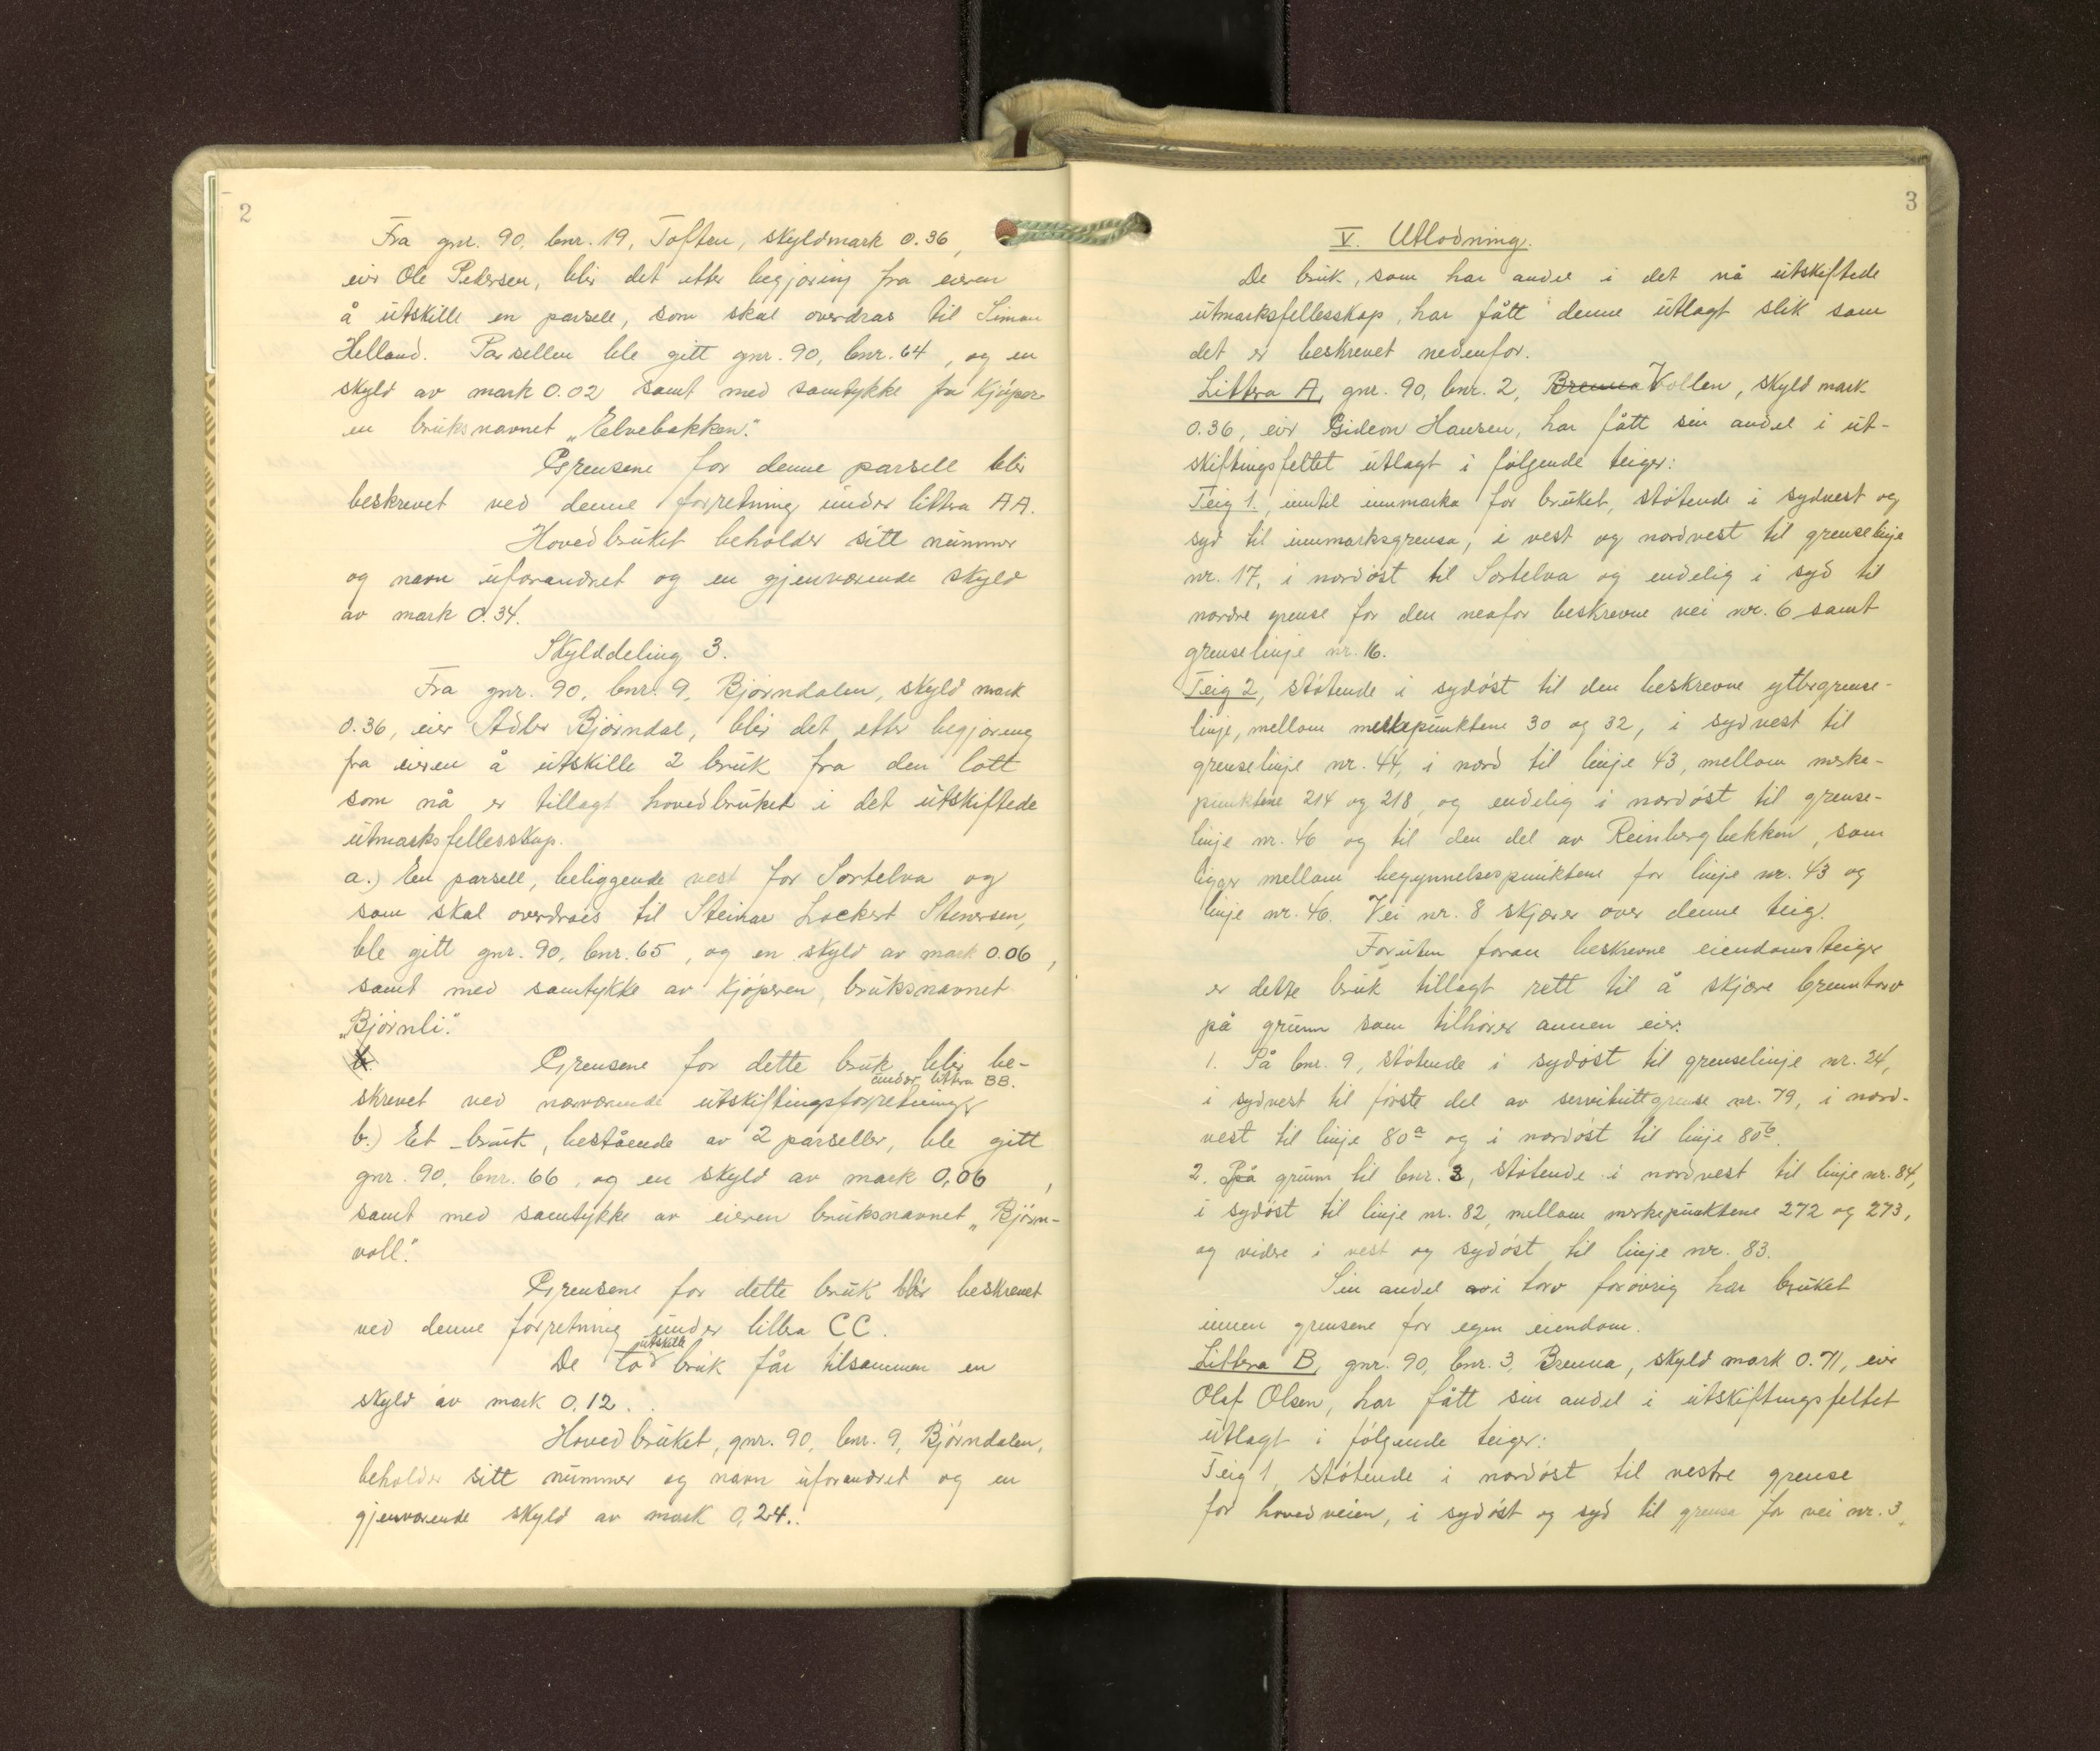 2
Fra gnr. 90, bnr. 19, Toften, skyldmark 0.36,
eier Ole Pedersen, blir det etter begjæring fra eieren
å utskille en parsell, som skal overdras til Simon
Helland. Parsellen ble gitt gnr. 90, bnr. 64, og en
skyld av mark 0.02 samt med samtykke fra kjøper-
en bruksnavnet „Elvebakken".
Grensene for denne parsell blir
beskrevet ved denne forretning under littra AA.
Hovedbruket beholder sitt nummer
og navn uforandret og en gjenværende skyld
av mark 0.34.
Skylddeling 3.
Fra gnr. 90, bnr. 9, Bjørndalen, skyld mark
0.36, eier Adler Bjørndal, blir det etter begjæring
fra eieren å utskille 2 bruk fra den lott
som nå er tillagt hovedbruket i det utskiftede
utmarksfellesskap.
a.) En parsell, beliggende vest for Sortelva og
som skal overdraes til Steinar Lockert Stenersen,
ble gitt gnr. 90, bnr. 65, og en skyld av mark 0.06,
samt med samtykke av kjøperen, bruksnavnet
„Bjørnli".
b. Grensene for dette bruk blir be-
under littra BB.
skrevet ved nærværende utskiftingsforretning
b.) Et bruk, bestående av 2 parseller, ble gitt
gnr. 90, bnr. 66, og en skyld av mark 0,06,
samt med samtykke av eieren bruksnavnet „Bjørn-
voll".
Grensene for dette bruk blir beskrevet
ved denne forretning under littra CC.
utskilte
De to bruk får tilsammen en
skyld av mark 0,12.
Hovedbruket, gnr. 90, bnr. 9, Bjørndalen,
beholder sitt nummer og navn uforandret og en
gjenværende skyld av mark 0,24.
3
V. Utlodning.
De bruk, som har andel i det nå utskiftede
utmarksfellesskap, har fått denne utlagt slik som
det er beskrevet nedenfor.
Littra A, gnr. 90, bnr. 2, Brenna Vollen, skyld mark
0.36, eier Gideon Hansen, har fått sin andel i ut-
skiftingsfeltet utlagt i følgende teiger:
Teig 1., inntil innmarka for bruket, støtende i sydvest og
syd til innmarksgrensa, i vest og nordvest til grenselinje
nr. 17, i nordøst til Sortelva og endelig i syd til
nordre grense for den neafor beskrevne vei nr. 6 samt
grenselinje nr. 16.
Teig 2, støtende i sydøst til den beskrevne yttergrense-
linje, mellom merkepunktene 30 og 32, i sydvest til
grenselinje nr. 44, i nord til linje 43, mellom merke-
punktene 214 og 218, og endelig i nordøst til grense-
linje nr. 46 og til den del av Reinbergbekken, som
ligger mellom begynnelsespunktene for linje nr. 43 og
linje nr. 46. Vei nr. 8 skjærer over denne teig.
Foruten foran beskrevne eiendomsteiger
er dette bruk tillagt rett til å skjære brenntorv
på grunn som tilhører annen eier.
1. På bnr. 9, støtende i sydøst til grenselinje nr. 24,
i sydvest til første del av servituttgrense nr. 79, i nord-
vest til linje 80a og i nordøst til linje 80b.
2. På grunn til bnr. 3, støtende i nordvest til linje nr. 84,
i sydøst til linje nr. 82, mellom merkepunktene 272 og 273,
og videre i vest og sydøst til linje nr. 83.
Sin andel i torv forøvrig har bruket
innen grensene for egen eiendom.
Littra B, gnr. 90, bnr. 3, Brenna, skyld mark 0.71, eier
Olaf Olsen, har fått sin andel i utskiftingsfeltet
utlagt i følgende teiger:
Teig 1, støtende i nordøst til vestre grense
for hovedveien, i sydøst og syd til grensa for vei nr. 3,